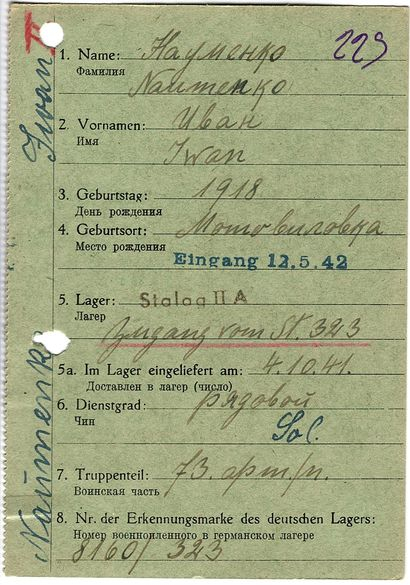 Naumenko Iwan II
223
1. Name: Науменко
Фамилия
Naumenko
2. Vornamen: Иван
Имя
Iwan
3. Geburtstag: 1918
День рождения
4. Geburtsort: Мотовиловка
Место рождения
Eingang 12.5.42
5. Lager: Stalag II A
Лагер
Zugang vom St. 323
5a. Im Lager eingeliefert am: 4.10.41.
Доставлен в лагер (число)
6. Dienstgrad: рядовой
Чин
Sol.
7. Truppenteil: 73. арт/п.
Воинская часть
8. Nr. der Erkennungsmarke des deutschen Lagers:
Номер военнопленного в германском лагере
8160/323